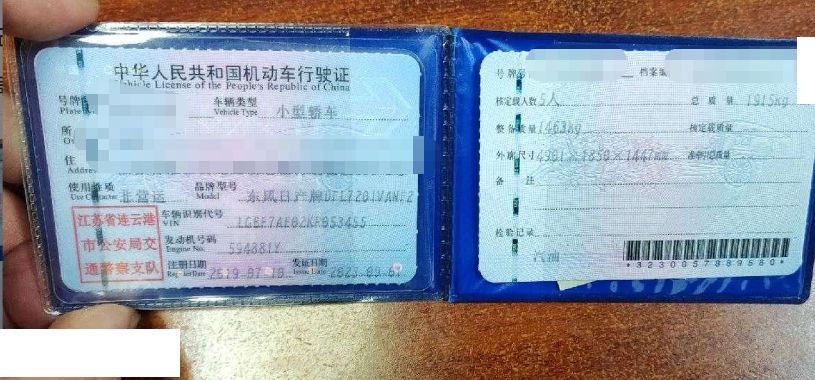 中华人民共和国机动车行驶证
Vehicle License of the People's Republic of China
号牌
车辆类型
Vehicle Type
小型轿车
所
住
Address
使用性质
Use Character
非营运
品牌型号
Model
东风日产牌DFL7201VANF2
江苏省连云港
市公安局交
通警察支队
车辆识别代号
VIN
发动机号码
Engine No.
594881Y
注册日期
Register Date
2019-07-18
发证日期
Issue Date
号牌号
档案编
核定载人数 5人
总质量 1915kg
整备质量 1463kg
核定载质量
外廓尺寸 4901×1850×1447mm
准牵引总质量
备 注
检验记录
汽油
*3230057889580*